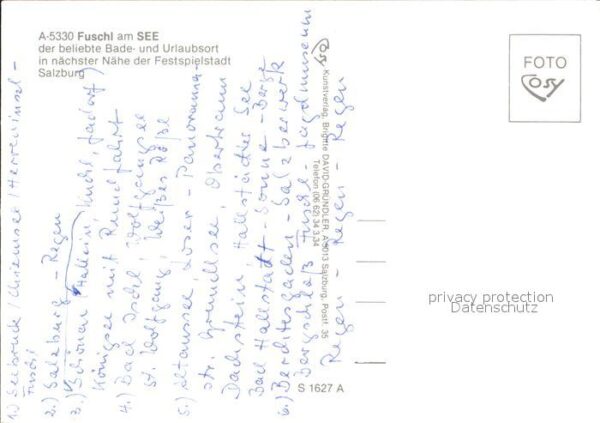 A-5330 Fuschl am SEE
der beliebte Bade- und Urlaubsort
in nächster Nähe der Festspielstadt
Salzburg
FOTO
Cosy
Cosy Kunstverlag, Brigitte DAVID-GRÜNDLER, A-5013 Salzburg, Postf. 35
Telefon (06 62) 34 3 34
S 1627 A
privacy protection
Datenschutz
1.) Seebruck / Chiemsee / Herreninsel -
Fuschl
2.) Salzburg - Regen
3.) Schönau (Hallein, Kuchl,
Königsee mit Rundfahrt
4.) Bad Ischl, Wolfgangsee
St. Wolfgang, Weißes Rößl
5.) Altaussee Loser - Panorama-
str. Grundlsee, Obertraun
Dachstein, Hallstädter See
Bad Hallstatt - Sonne - Berge
6.) Berchtesgaden - Salzbergwerk
Bergschloß Fuschl - Jagdmuseum
Regen - Regen - Regen - Regen